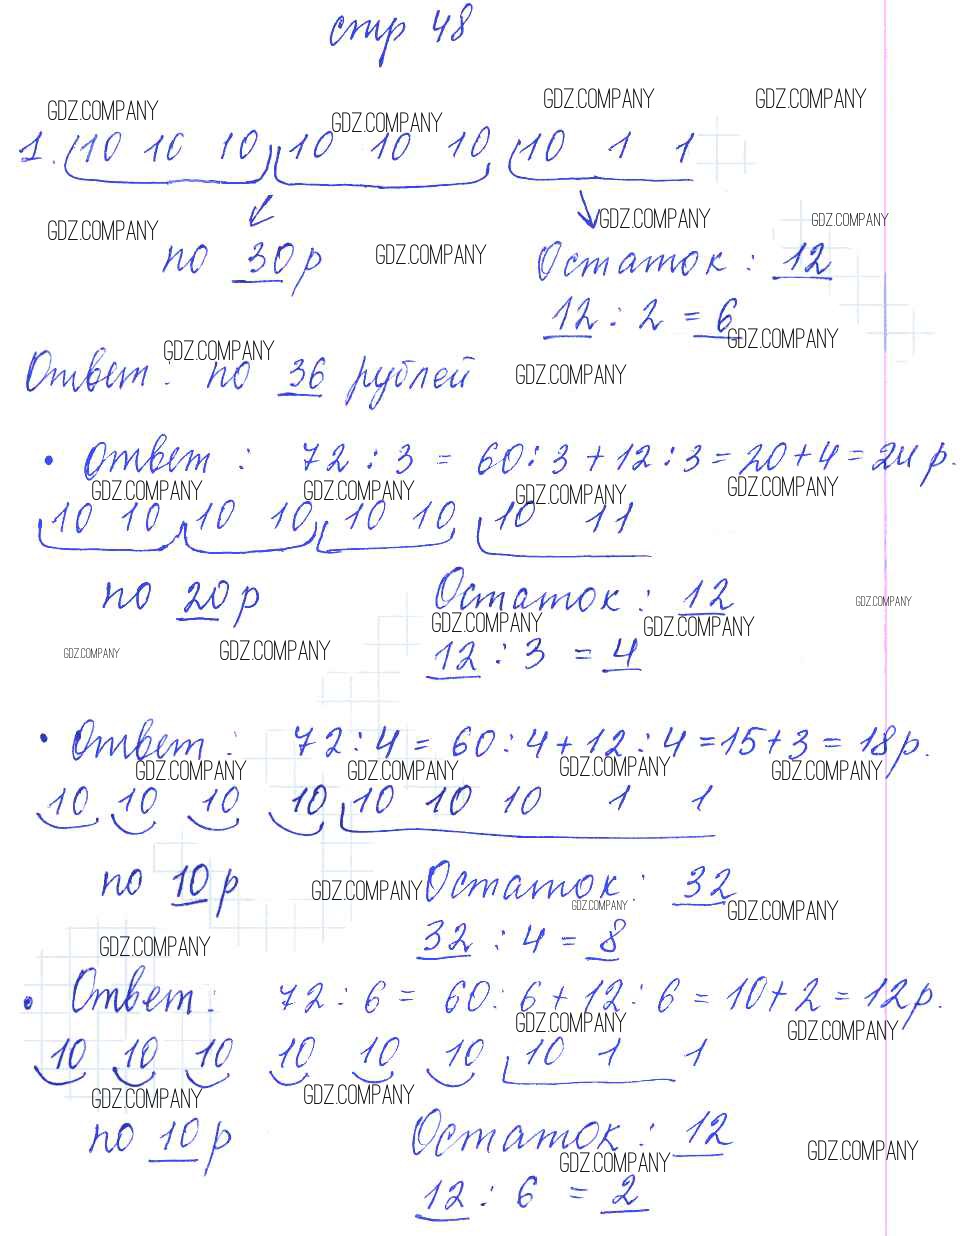 стр 48
GDZ.COMPANY GDZ.COMPANY GDZ.COMPANY GDZ.COMPANY
1. 10 10 10 10 10 10 10 1 1
GDZ.COMPANY GDZ.COMPANY GDZ.COMPANY
по 30 р GDZ.COMPANY Остаток : 12
12 : 2 = 6
GDZ.COMPANY GDZ.COMPANY
Ответ : по 36 рублей GDZ.COMPANY
• Ответ : 72 : 3 = 60 : 3 + 12 : 3 = 20 + 4 = 24 р.
GDZ.COMPANY GDZ.COMPANY GDZ.COMPANY GDZ.COMPANY
10 10 10 10 10 10 10 1 1
по 20 р Остаток : 12 GDZ.COMPANY
GDZ.COMPANY GDZ.COMPANY
GDZ.COMPANY GDZ.COMPANY 12 : 3 = 4
• Ответ : 72 : 4 = 60 : 4 + 12 : 4 = 15 + 3 = 18 р.
GDZ.COMPANY GDZ.COMPANY GDZ.COMPANY GDZ.COMPANY
10 10 10 10 10 10 10 1 1
по 10 р GDZ.COMPANY Остаток : 32
GDZ.COMPANY GDZ.COMPANY
GDZ.COMPANY 32 : 4 = 8
• Ответ : 72 : 6 = 60 : 6 + 12 : 6 = 10 + 2 = 12 р.
GDZ.COMPANY GDZ.COMPANY
10 10 10 10 10 10 10 1 1
GDZ.COMPANY GDZ.COMPANY
по 10 р Остаток : 12 GDZ.COMPANY
GDZ.COMPANY
12 : 6 = 2